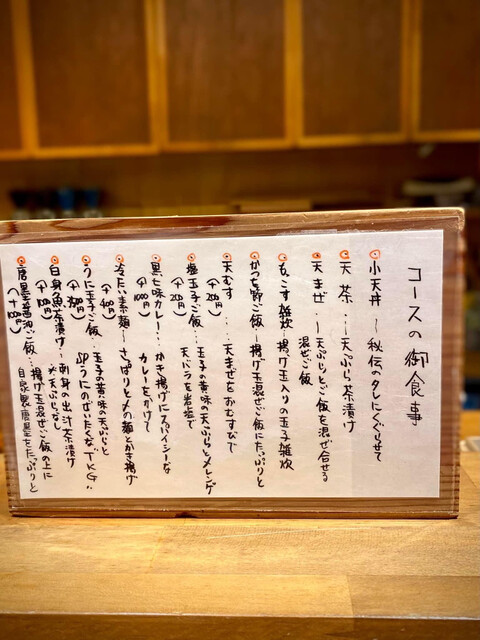 コースの御食事
小天丼 〜秘伝のタレにくぐらせて
天茶・・〜天ぷら茶漬け
天まぜ・・〜天ぷらとご飯を混ぜ合せる
混ぜご飯
もこす雑炊〜揚げ玉入りの玉子雑炊
かつを節ご飯〜揚げ玉混ぜご飯にたっぷりと
天むす・・・天まぜをおむすびで
(+200円)
塩玉子ご飯・・玉子の黄味の天ぷらとメレンゲ
(+250円) 天バラを岩塩で
黒七味カレー・・かき揚げにスパイシーな
(+1000円) カレーをかけて
冷たい素麺〜さっぱりと〆の麺とかき揚げ
(+400円)
うに玉子ご飯 玉子の黄味の天ぷらと
spうにのぜいたくなTKG
白身魚茶漬け〜刺身の出汁茶漬け
(+100円) ※天ぷらなし
唐墨醤油ご飯・・揚げ玉混ぜご飯の上に
(+1100円) 自家製唐墨をたっぷりと